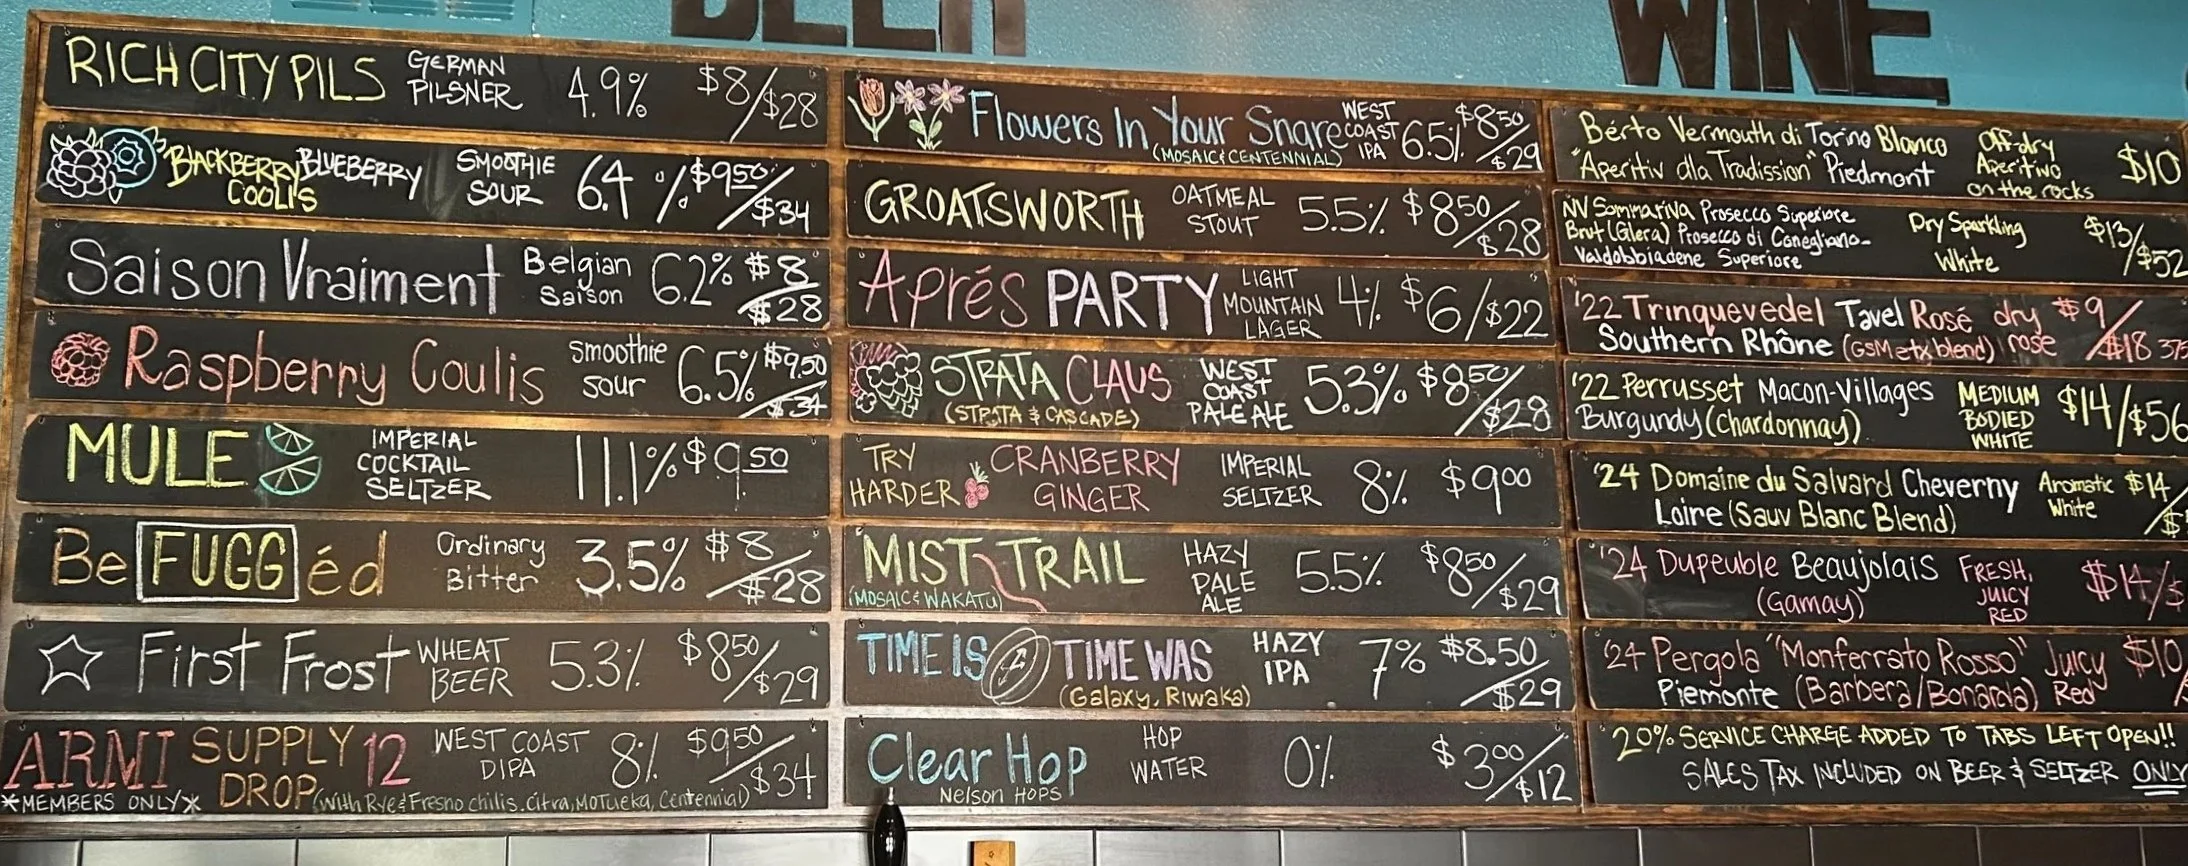 BEER
WINE
RICH CITY PILS GERMAN PILSNER 4.9% $8/$28
BLACKBERRY BLUEBERRY COOLIS SMOOTHIE SOUR 6.4% $9.50/$34
Saison Vraiment Belgian Saison 6.2% $8/$28
Raspberry Coulis smoothie sour 6.5% $9.50/$34
MULE IMPERIAL COCKTAIL SELTZER 11.1% $9.50
Be FUGG éd Ordinary Bitter 3.5% $8/$28
First Frost WHEAT BEER 5.3% $8.50/$29
ARMI SUPPLY DROP 12 WEST COAST DIPA 8% $9.50/$34
*MEMBERS ONLY* (With Rye & Fresno chilis. Citra, MOTueka, Centennial)
Flowers In Your Snare WEST COAST IPA 6.5% $8.50/$29
(MOSAIC & CENTENNIAL)
GROATSWORTH OATMEAL STOUT 5.5% $8.50/$28
Aprés PARTY LIGHT MOUNTAIN LAGER 4% $6/$22
STRATA CLAUS WEST COAST PALE ALE 5.3% $8.50/$28
(STRATA & CASCADE)
TRY HARDER CRANBERRY GINGER IMPERIAL SELTZER 8% $9.00
MIST TRAIL HAZY PALE ALE 5.5% $8.50/$29
(MOSAIC & WAKATU)
TIME IS TIME WAS HAZY IPA 7% $8.50/$29
(Galaxy, Riwaka)
Clear Hop HOP WATER 0% $3.00/$12
Nelson HOPS
Bérto Vermouth di Torino Blanco Off-dry Aperitivo on the rocks $10
"Aperitiv dla Tradission" Piedmont
NV Sommariva Prosecco Superiore Dry Sparkling White $13/$52
Brut (Glera) Prosecco di Conegliano-
Valdobbiadene Superiore
'22 Trinquevedel Tavel Rosé dry rosé $9/$18 375
Southern Rhône (GSM etx blend)
'22 Perrusset Macon-Villages MEDIUM BODIED WHITE $14/$56
Burgundy (Chardonnay)
'24 Domaine du Salvard Cheverny Aromatic White $14/$
Loire (Sauv Blanc Blend)
'24 Dupeuble Beaujolais FRESH, JUICY RED $14/$
(Gamay)
'24 Pergola "Monferrato Rosso" Juicy Red $10/
Piemonte (Barbera/Bonarda)
20% SERVICE CHARGE ADDED TO TABS LEFT OPEN!!
SALES TAX INCLUDED ON BEER & SELTZER ONLY